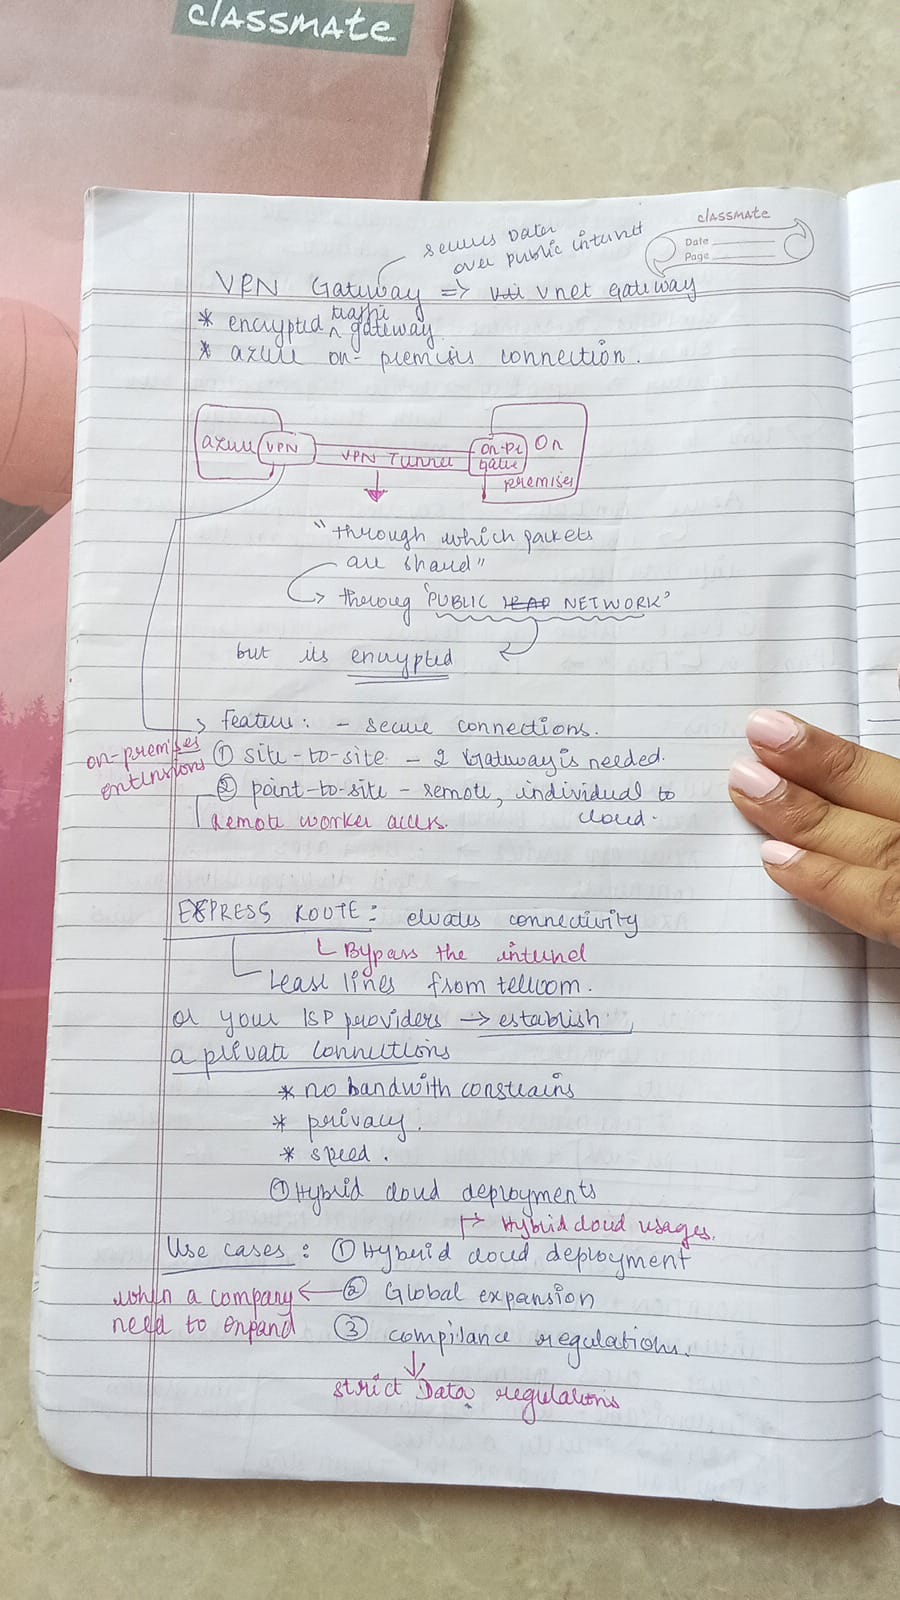 classmate
classmate
Date
Page
secures Data
over public internet
VPN Gateway => Vnet gateway
traffic
* encrypted ^ gateway
* azure on-premises connection.
azure VPN VPN Tunnel on-pr gatew On premises
"through which packets
are shared"
↳ theroug 'PUBLIC NETWORK'
but its encrypted
feature: - secure connections.
on-premises extensions
① site-to-site - 2 Gateway is needed.
② point-to-site - remote, individual to
cloud.
remote worker access.
EXPRESS ROUTE: elvates connectivity
Bypass the internet
Lease lines from telecom.
or your ISP providers → establish
a private connections
* no bandwith constrains
* privacy.
* speed.
① Hybrid cloud deployments
→ Hybrid cloud usages.
Use cases: ① Hybrid cloud deployment
when a company ← ② Global expansion
need to expand ③ compilance regulations.
↓
strict Data regulations